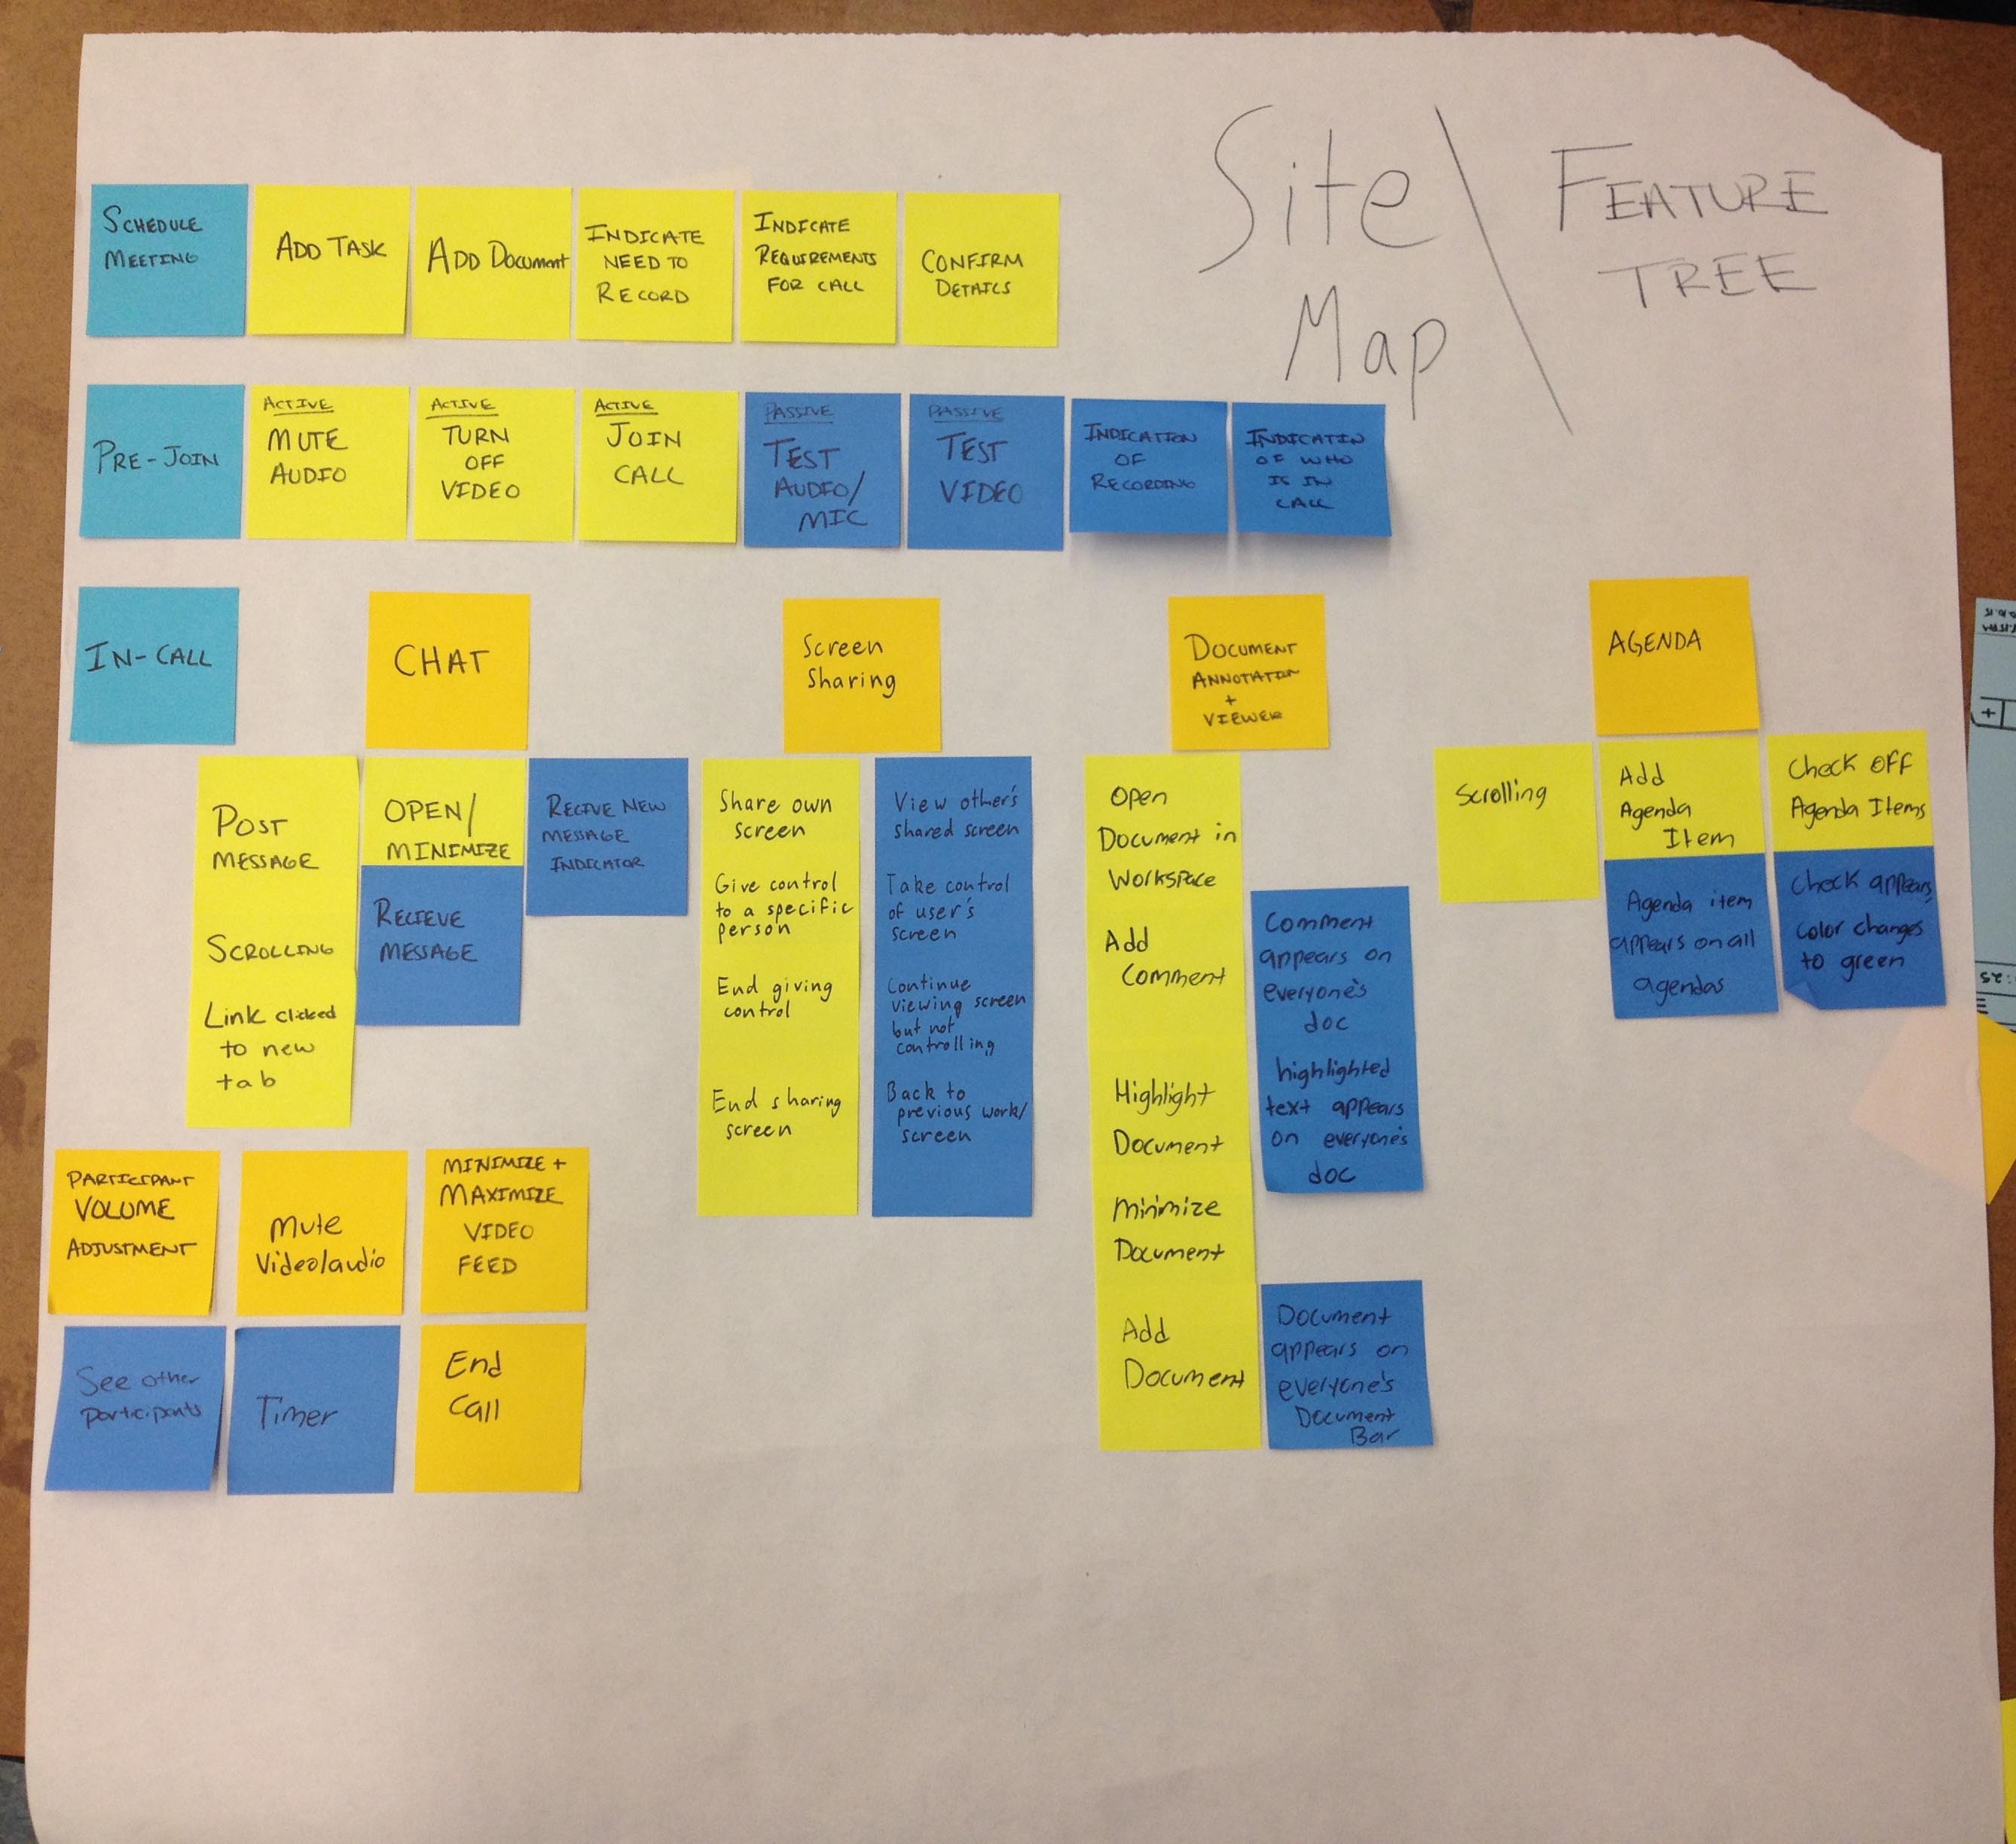 Site
Map
\
FEATURE
TREE
SCHEDULE
MEETING
ADD TASK
ADD DOCUMENT
INDICATE
NEED TO
RECORD
INDICATE
REQUIREMENTS
FOR CALL
CONFIRM
DETAILS
PRE-JOIN
ACTIVE
MUTE
AUDIO
ACTIVE
TURN
OFF
VIDEO
ACTIVE
JOIN
CALL
PASSIVE
TEST
AUDIO/
MIC
PASSIVE
TEST
VIDEO
INDICATION
OF
RECORDING
INDICATIN
OF WHO
IS IN
CALL
IN-CALL
CHAT
POST
MESSAGE
SCROLLING
Link clicked
to new
tab
OPEN/
MINIMIZE
RECIEVE
MESSAGE
RECIVE NEW
MESSAGE
INDICATOR
Screen
Sharing
Share own
screen
Give control
to a specific
person
End giving
control
End sharing
screen
View other's
shared screen
Take control
of user's
screen
Continue
viewing screen
but not
controlling
Back to
previous work/
screen
DOCUMENT
ANNOTATION
+
VIEWER
Open
Document in
Workspace
Add
Comment
Highlight
Document
Minimize
Document
Add
Document
Comment
appears on
everyone's
doc
highlighted
text appears
on everyone's
doc
Document
appears on
everyone's
Document
Bar
AGENDA
Scrolling
Add
Agenda
Item
Agenda item
appears on all
agendas
Check off
Agenda Items
Check appears,
color changes
to green
PARTICIPANT
VOLUME
ADJUSTMENT
Mute
Video/audio
MINIMIZE +
MAXIMIZE
VIDEO
FEED
See other
participants
Timer
End
Call